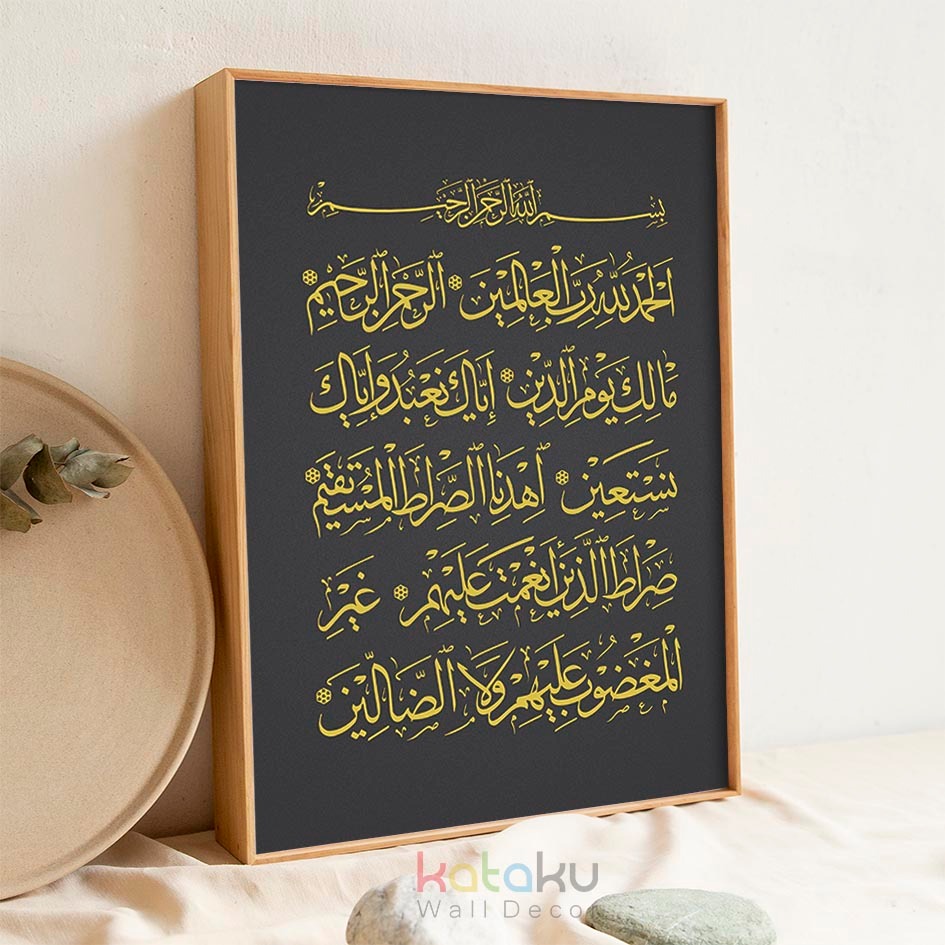 بِسْمِ ٱللَّهِ ٱلرَّحْمَٰنِ ٱلرَّحِيمِ
اَلْحَمْدُ لِلّٰهِ رَبِّ الْعَالَمِينَ ۞ ٱلرَّحْمَٰنِ ٱلرَّحِيمِ ۞
مَالِكِ يَوْمِ ٱلدِّينِ ۞ إِيَّاكَ نَعْبُدُ وَإِيَّاكَ
نَسْتَعِينُ ۞ ٱهْدِنَا ٱلصِّرَاطَ ٱلْمُسْتَقِيمَ ۞
صِرَاطَ ٱلَّذِينَ أَنْعَمْتَ عَلَيْهِمْ ۞ غَيْرِ
ٱلْمَغْضُوبِ عَلَيْهِمْ وَلَا ٱلضَّالِّينَ ۞
kataku
Wall Decor